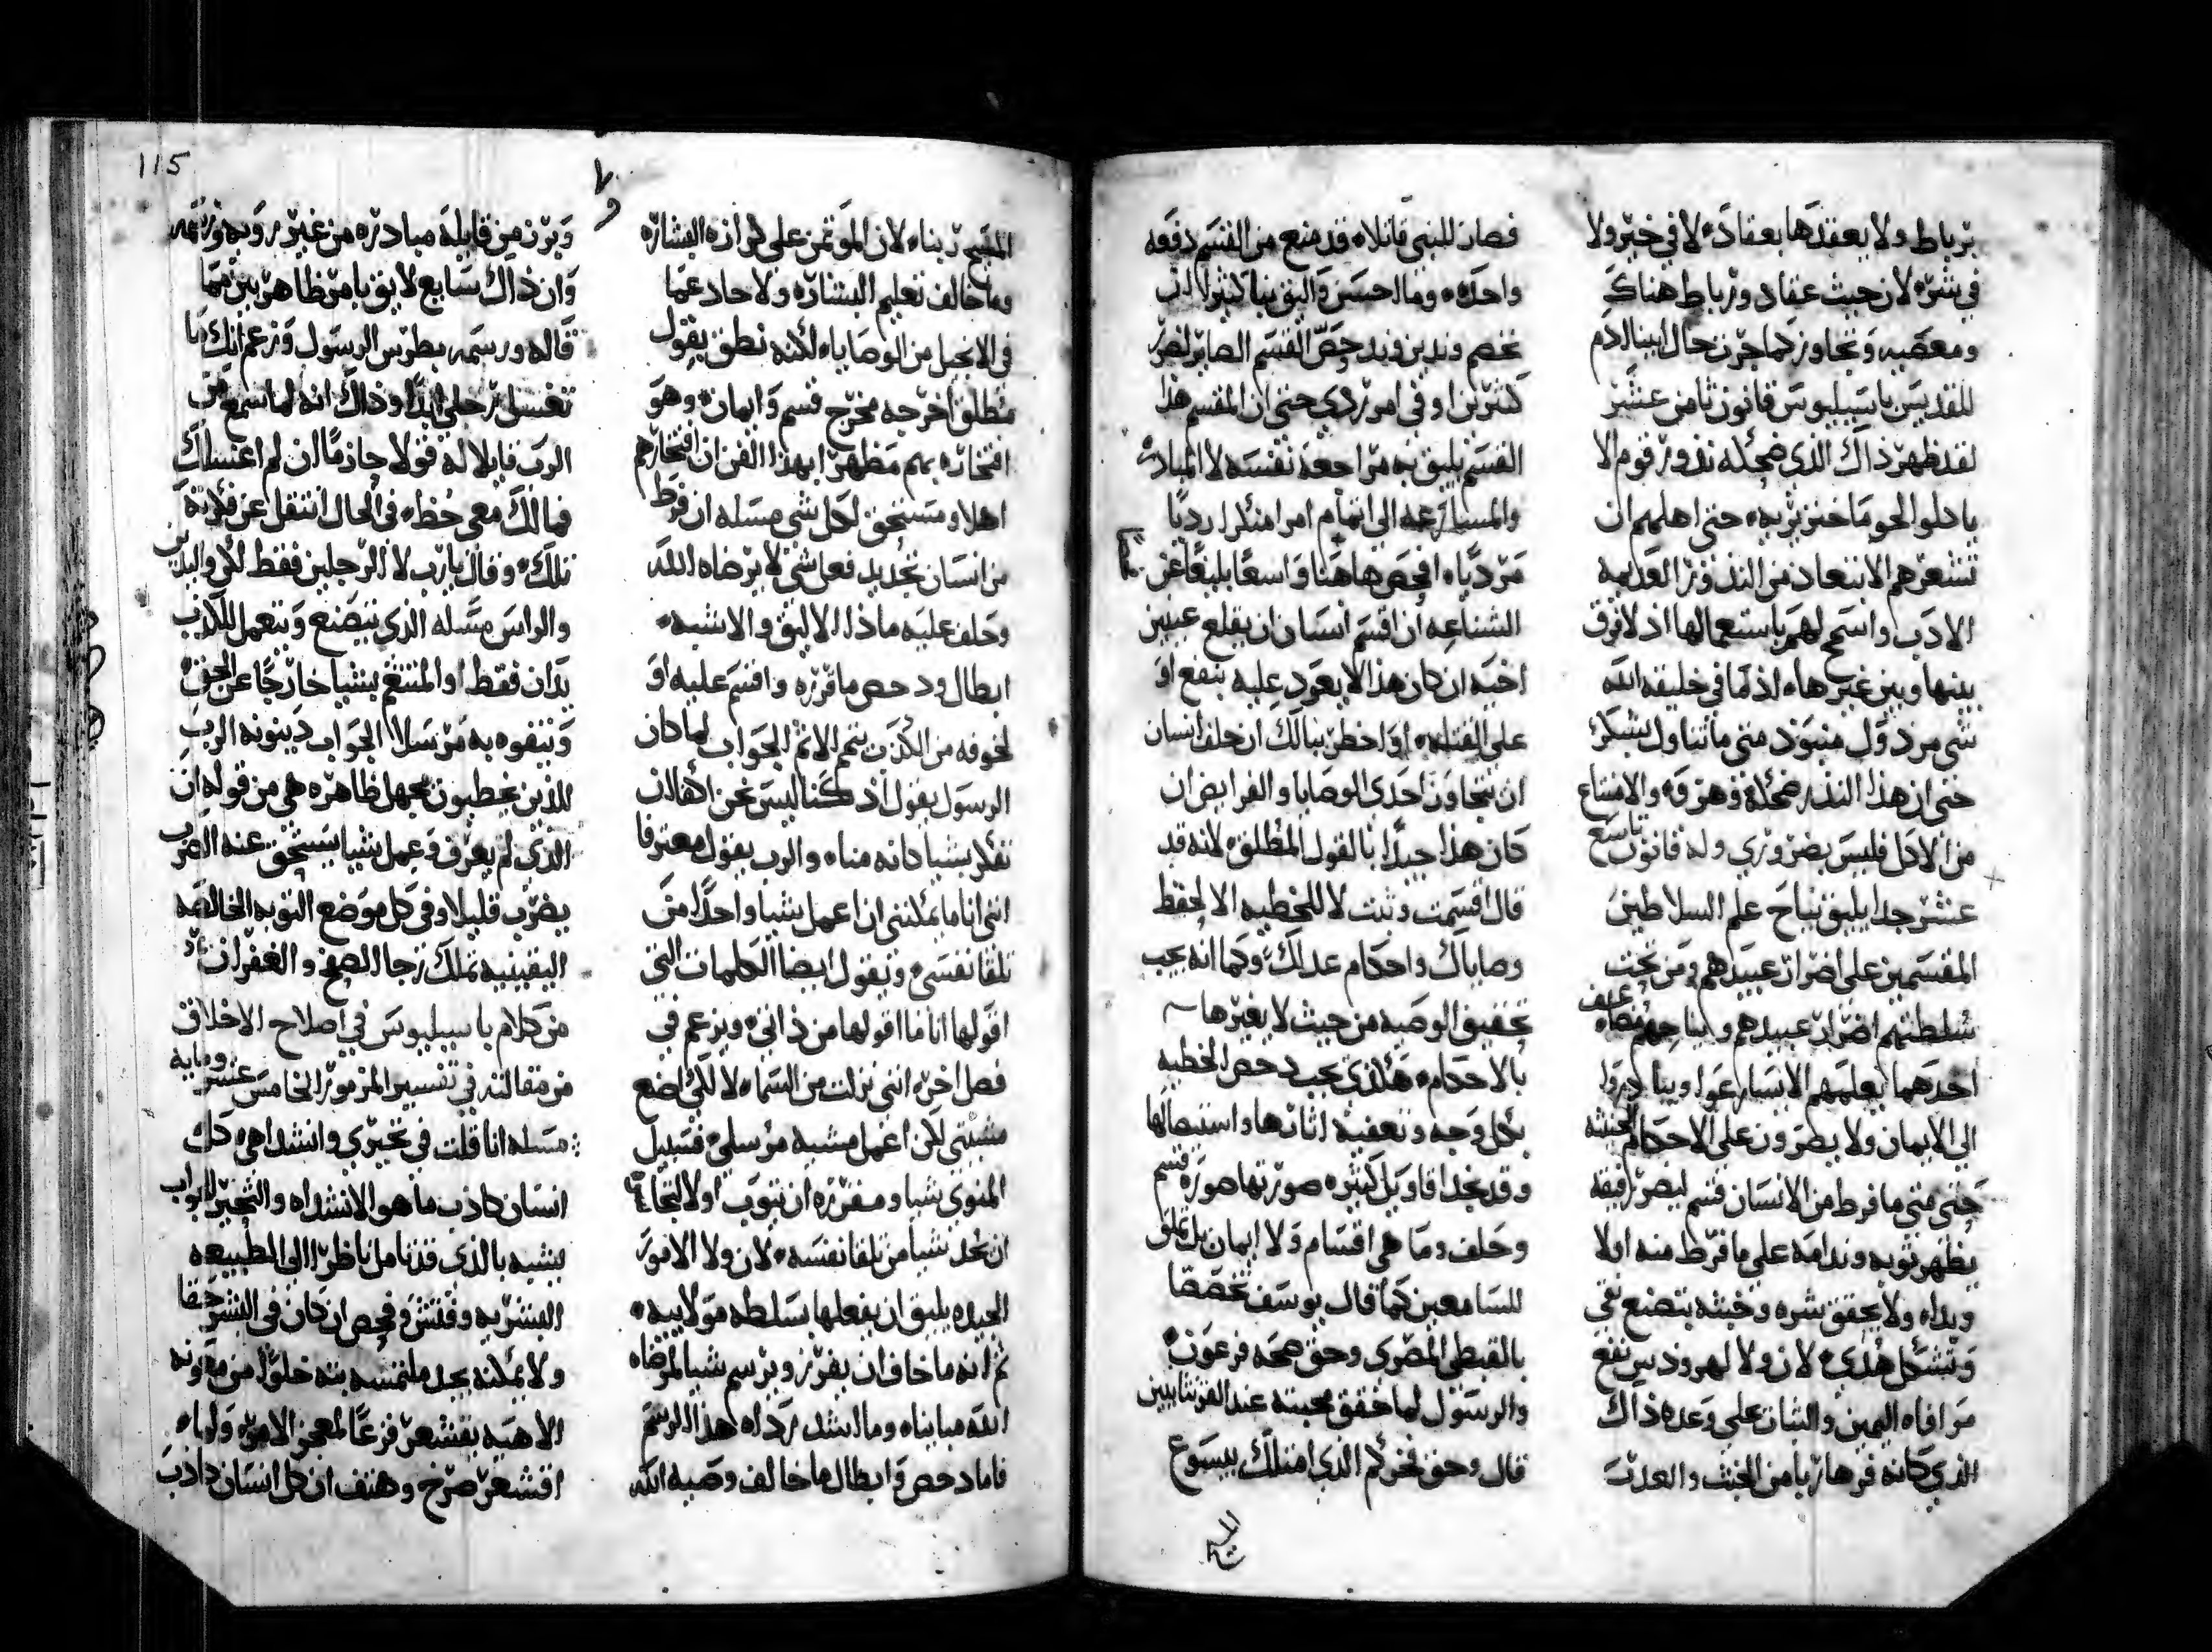 برباط ولا يعقدها بعقاد لا في خير ولا
في شر لان حيث عقاد ورباط هناك
ومعصيه وتجاوز كما جرت حال ابينا ادم
للقديس باسيليوس قانون ثامن عشر
لقد ظهر ذاك الذي ضحكه نذور قوم الا
ياكلوا لحوما خنزيريه حتى اهلهم ان
تشعرهم الابتعاد من النذور العديمه
الادب واسمح لهم باستعمالها اذ لا فرق
بينها وبين غيرها اذ ما في خليقه الله
شي مردول منبود متى ما تناول بشكر
حتى ان هذا النذر ضحكة وهزوه والامتناع
من الاكل فليس بضروري وله قانون تاسع
عشر جدا يليق بنا علم السلاطين
المقسمين على اضرار عبيدهم ومن تحت
سلطتهم اضرار عبيدهم
احدهما يعلمهم الا يسارعوا ويبادروا
الي الايمان ولا يصرون على الاحكام الخبيثه
حتى متى ما فرط من الانسان قسم ليضر رفيقه
يظهر توبه وندامه على ما فرط منه اولا
وبداه ولا يحقق شره وخبثه بتصنع تقى
وتشكل هدى لان ولا لهرودس نفع
مرافاه اليمين والثبات على وعده ذاك
الذي كانه قر هاربا من الحنث والعدت
فصار للنبي قاتلا قد منع من القسم دفعه
واحده وما احسن واليق بنا كثيرا ان
نخصم وندين وندحص القسم الصاير لضرر
كثيرين او في امر ردي حتى ان المقسم هذا
القسم يليق به مراجعة نفسه لا المبادره
والمسارعه الى اتمام امرا منكرا رديا
مرديا افحص هاهنا واسعا بليغا عن
الشناعه ان اقسم انسان ان يقلع عينين
اخيه ان كان هذا لا يعود عليه بنفع او
على القتله او اخطر ببالك ان حلف انسان
ان يتجاوز احدى الوصايا والفرايض ان
كان هذا جيدا بالقول المطلق لانه قد
قال اقسمت وثبت لا للخطيه الا لحفظ
وصاياك واحكام عدلك وكما انه يجب
تحقيق الوصيه من حيث لا يغيرها
بالاحكام هكذى يجب دحص الخطيه
بكل وجه وتعفية اثارها واستيصالها
وقد نجد اقاويل كثيره صورتها صورة قسم
وحلف وما هي اقسام ولا ايمان بل
للسامعين كما قال يوسف تخصصا
بالقبطي المصري وحق صحه فرعون
والرسول لما حقق محبته عند القرنثايين
قال وحق فخركم الذي امتلك بيسوع
الم
115
المسيح ربنا لان الموتمن على كرازة البشاره
وما خالف تعليم البشاره ولا حاد عما
في الانجيل من الوصايا لكنه نطق بقول
مطلق اخرجه مخرج قسم وايمان وهو
افتخاره بهم مظهرا بهذا الفن ان افتخارهم
اهلا ومستحق لكل شي مسله ان فرط
من انسان تحديد فعل شي لا يرضاه الله
وحلف عليه ماذا الاليق والاشبه
ابطال ودحص ما قرره واقسم عليه او
لخوفه من الكذب يتم الاثم الجواب لما كان
الرسول يقول اذ كنا ليس نحن اهلا ان
نفكر بشيا كانه منا والرب يقول معترفا
انني انا ما يمكنني ان اعمل شيا واحدا من
تلقا نفسي ويقول ايضا الكلمات التي
اقولها انا ما اقولها من ذاتي ويزعم في
فصل اخر انني نزلت من السما لا لكي اصنع
مشيتي لكن اعمل مشيه مرسلي فسبيل
المنوي شيا ومقرره ان يتوب اولا لتجا
ان يحد شيا من تلقا نفسه لان ولا الامور
الجيده يليق ان يفعلها بسلطه مولاييه
ثم انه ما خاف ان يقرر ويرسم شيا لمرضاه
الله مباينا وما اشد رداه هذا الرسم
فاما دحص وابطال ما خالف وصية الله
ويرذل من قايله مبادره من غير رويه
وان ذاك سايع لايق بامر ظاهر بين مما
قاله ورسمه بطرس الرسول وزعم انك ما
تغسل رجلي ابدا وذاك انه لما سمع من
الرب قايلا له قولا جازما ان لم اغسلك
فما لك معي حظ في الحال انتقل عن فكرته
تلك وقال يارب لا الرجلين فقط لكن واليدين
والراس مسله الذي يتصنع ويتعمل الكذب
يدان فقط او المتنغم بشيا خارجا عن الحق
ويتفوه به مرسلا الجواب دينونة الرب
للذين يخطيون بجهل ظاهره هي من قوله ان
الذي لم يعرف وعمل شيا يستحق عنه الضرب
يضرب قليلا وفي كل موضع التوبه الخالصه
اليقينيه تملك رجا الصفح والغفران
من كلام باسيليوس في اصلاح الاخلاق
من مقالته في تفسير المزمور الخامس عشر ومايه
مسله انا قلت في تحيري وانشداهي كل
انسان كاذب ما هو الانشداه والتحير الجواب
يشبه بالذي قد تامل ناظرا الى الطبيعه
البشريه وفتش وفحص ان كان في البشر حقا
ولا يمكنه يجد ملتمسه بته خلوا من معونه
الاهيه يقشعر فزعا لمعجز الامر ولما
اقشعر صرخ وهتف ان كل انسان كاذب